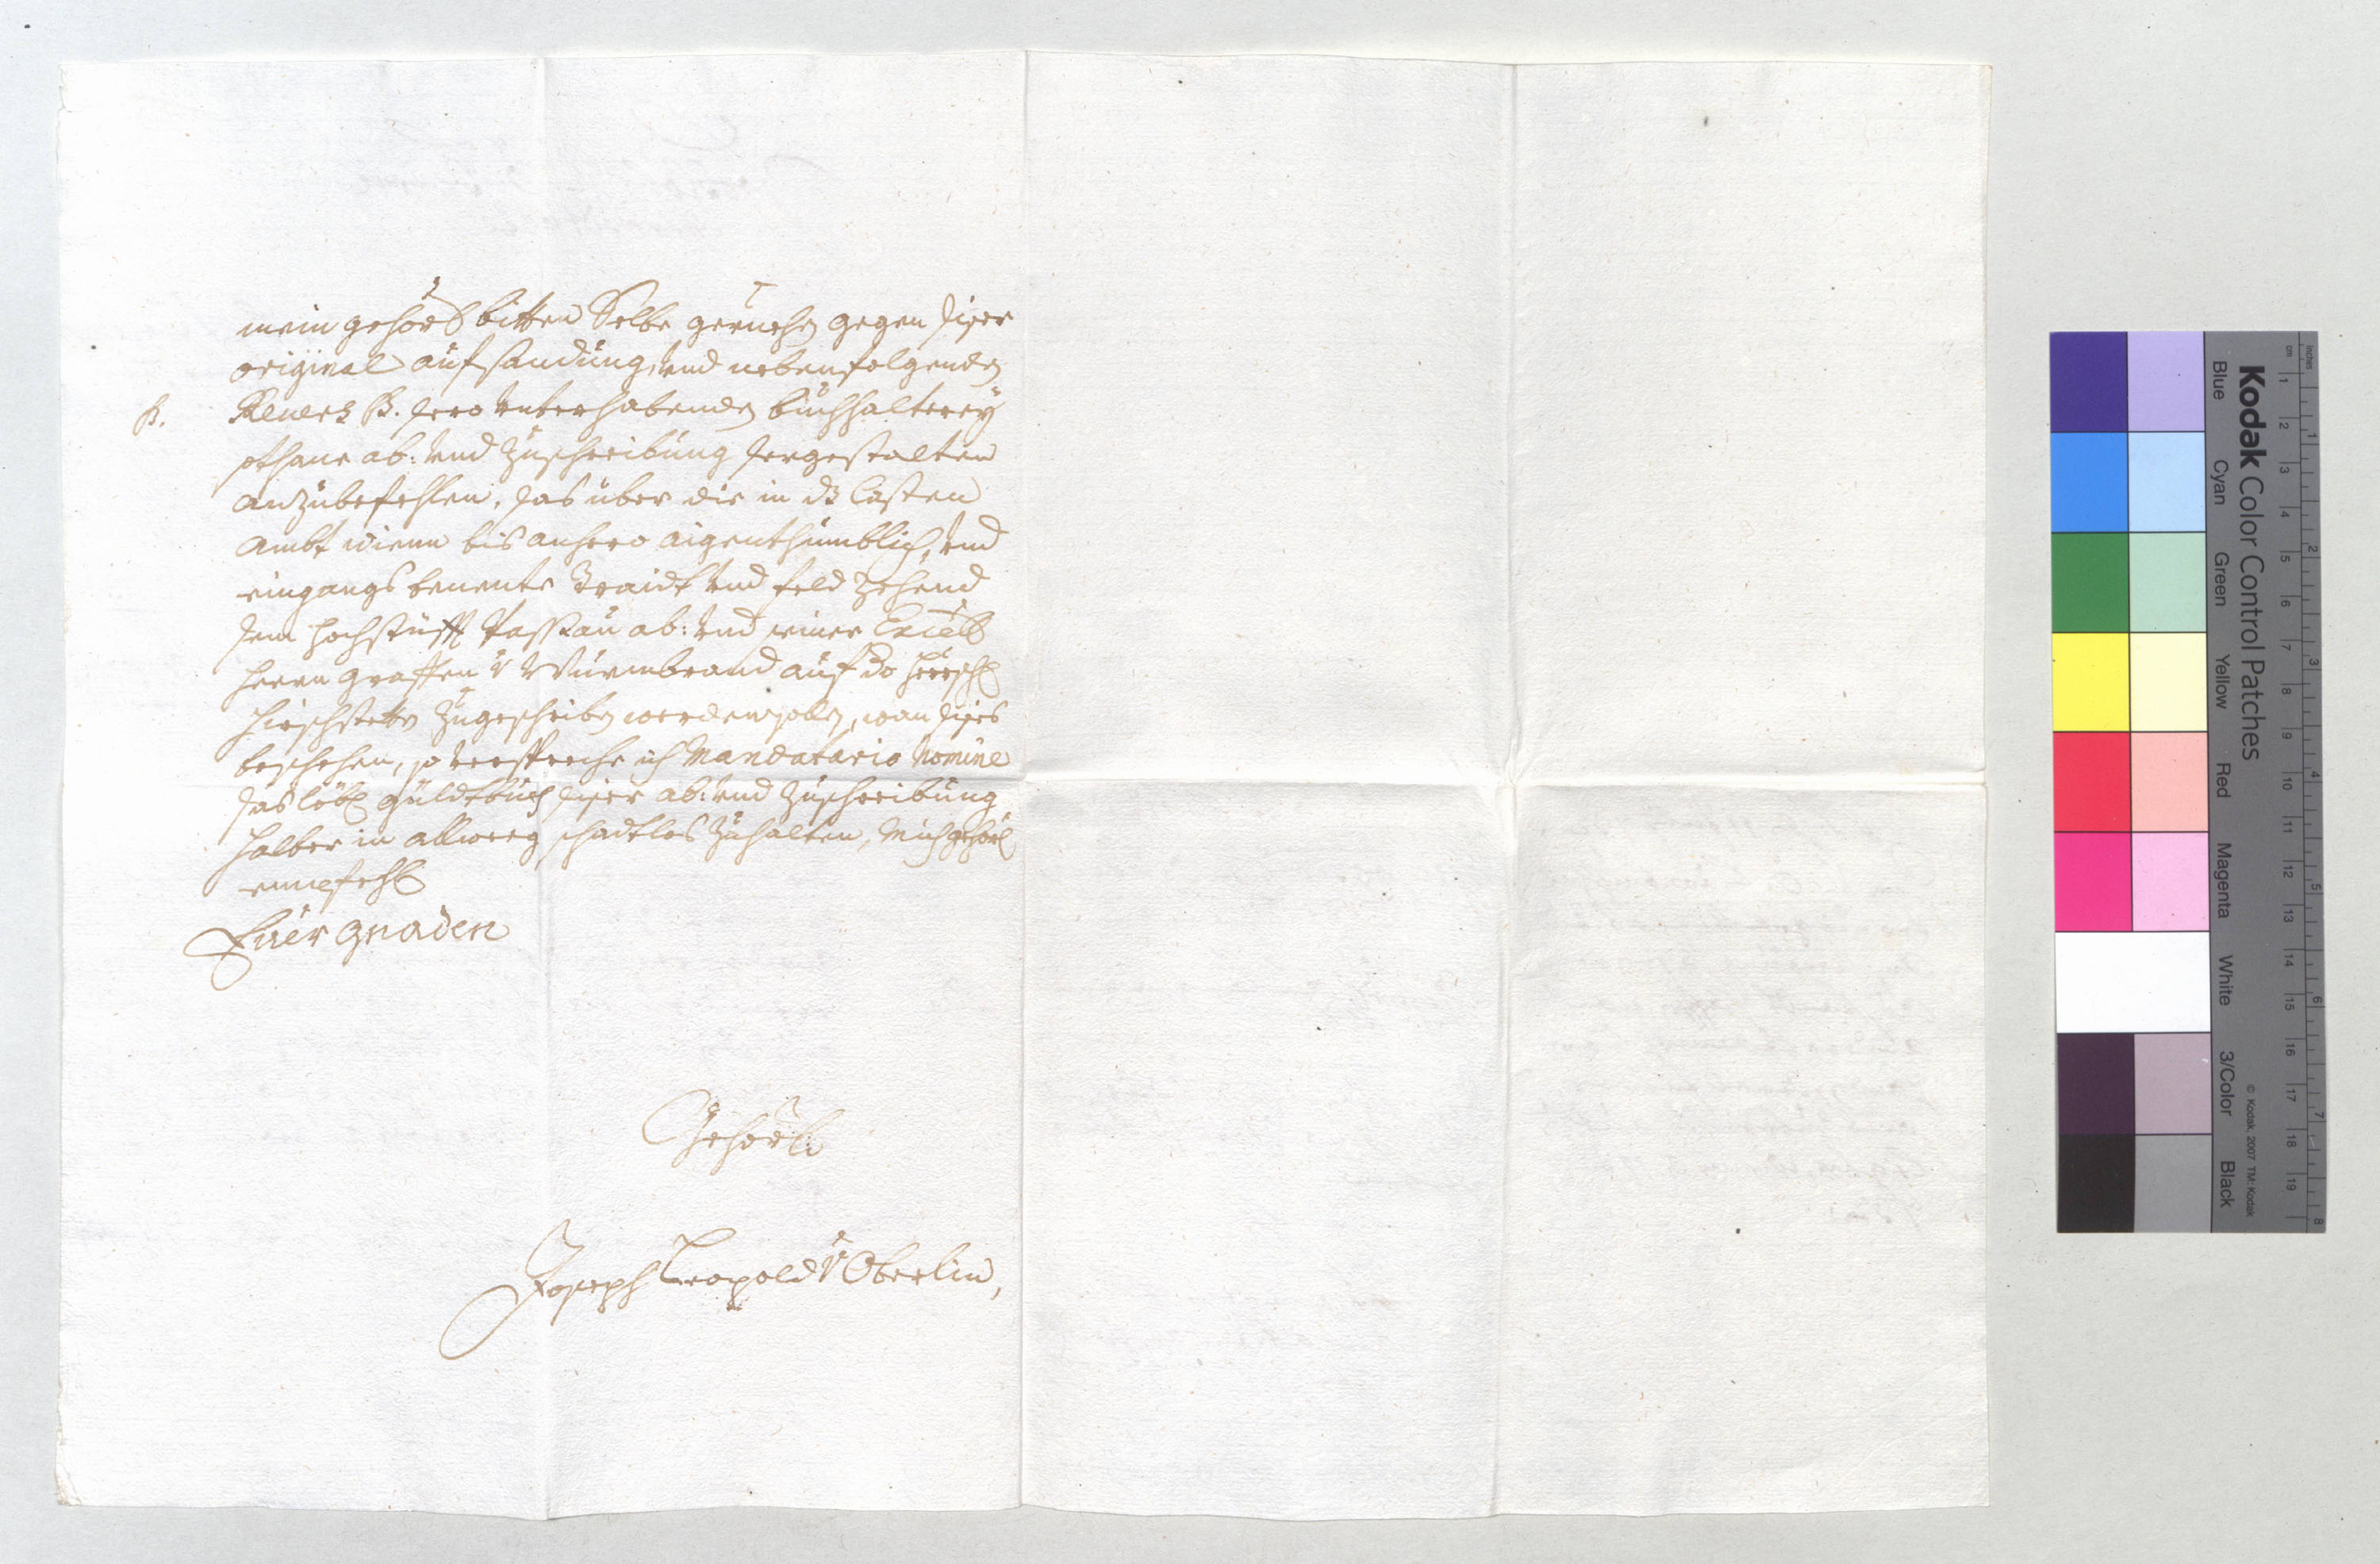 mein gehors bitten Selbe geruehen gegen diser
original aufsandung, und nebenfolgenden
B.
Revers B. dero unterhabenden buchhalterey
sothane ab: und Zuschreibung dergestalten
anzubefehlen, das über die in das Casten
Ambt wienn bis anhero aigenthumblich, und
eingangs benente Traidt und feld zehend
dem hochstüfft Passau ab: und seiner Excell
herrn graffen v Wurmbrand auf do herrsch
hirschstetten zugeschriben werden sollen, wan dises
beschehen, so verspreche ich Mandatario Nomine
das löbl güldtbuch diser ab: und Zuschreibung
halber in allweeg schadtlos zuhalten, Mich gehorl
empfehl
Euer Gnaden
Gehorl:
Joseph Leopold v Oberlin,
Kodak Color Control Patches
Blue Cyan Green Yellow Red Magenta White 3/Color Black
© Kodak, 2007 TM: Kodak
cm 1 2 3 4 5 6 7 8 9 10 11 12 13 14 15 16 17 18 19
inches 1 2 3 4 5 6 7 8